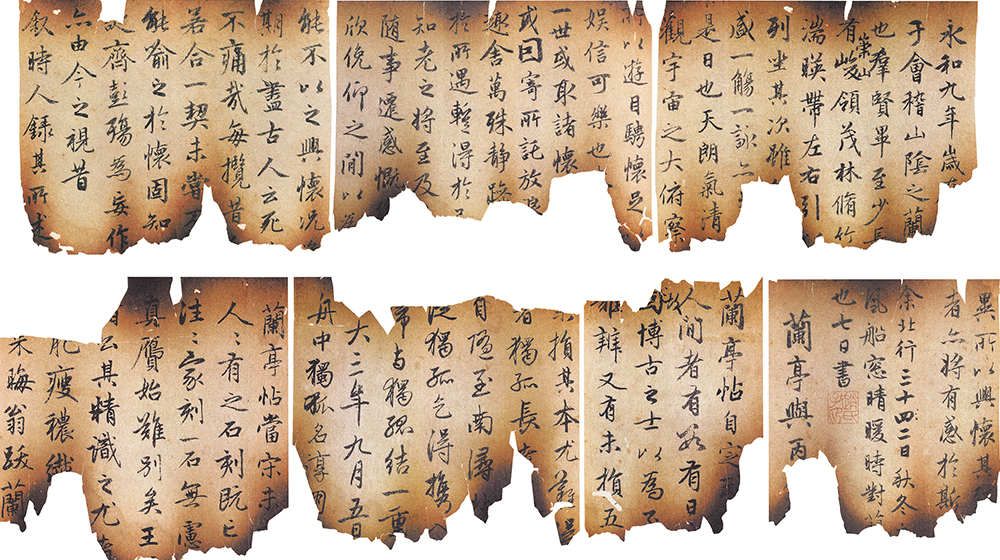 永和九年歲
于會稽山陰之蘭
也羣賢畢至少長
有崇山峻領茂林脩竹
湍暎帶左右引
列坐其次雖
盛一觴一詠亦
是日也天朗氣清
觀宇宙之大俯察
所以遊目騁懷足
娛信可樂也
一世或取諸懷
或因寄所託放浪
趣舍萬殊静躁
於所遇暫得於
知老之將至及
隨事遷感慨
欣俛仰之間以為
能不以之興懷況
期於盡古人云死
不痛哉每攬昔
若合一契未嘗不
能喻之於懷固知
故齊彭殤為妄作
亦由今之視昔
敘時人錄其所述
異所以興懷其
者亦將有感於斯
余北行三十四二日秋冬
風船窓晴暖時對
也七日書
蘭亭與丙
蘭亭帖自定
人間者有數有日
博古之士以為
難辨又有未損五
損其本尤難
者獨孤長
自隨至南潯
從獨孤乞得携
与獨孤結一重
大三年九月五日
舟中獨孤名淳朋
蘭亭帖當宋未
人〻有之石刻既亡
往〻家刻一石無慮
真贗始難別矣王
其精識之尤
肥瘦穠纖
朱晦翁跋蘭